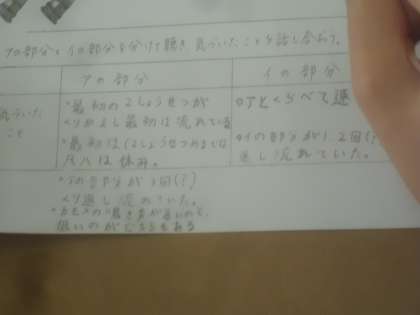 アの部分とイの部分を分けて聴き、気づいたことを話し合おう。
アの部分
イの部分
気づいたこと
・最初の2しょうせつが
くりかえし最初は流れている
・最初は(2しょうせつめまでは)
尺八は休み。
・アとくらべて速
・イの部分が1、2回(?)
返し流れていた。
・アの部分が3回(?)
くり返し流れていた。
低いのがどちらもある